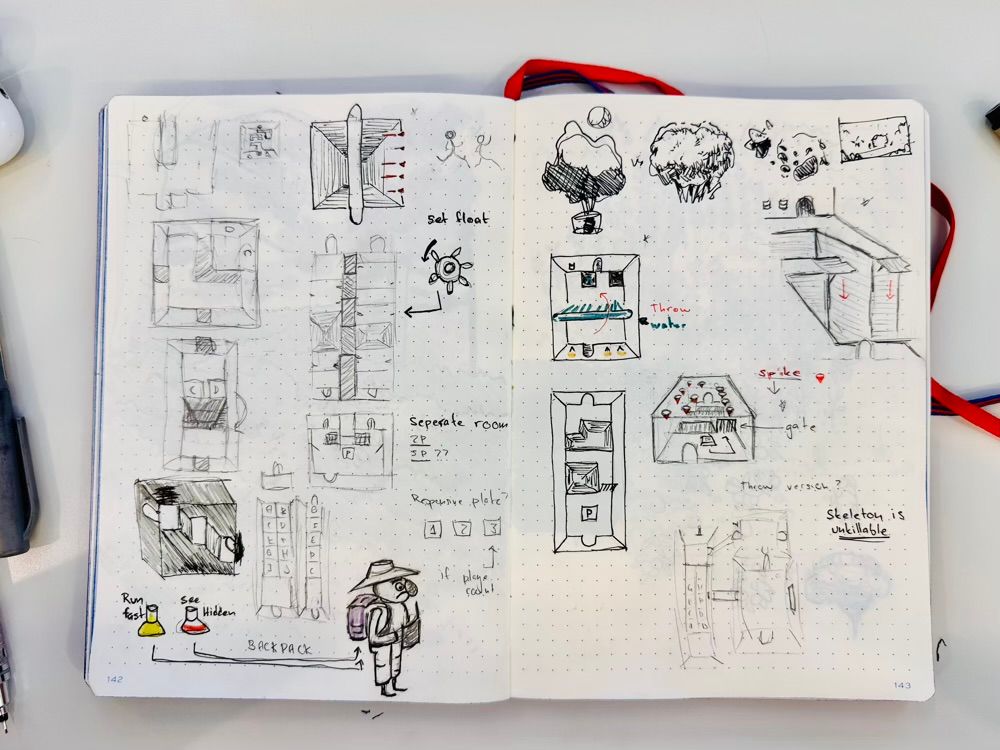 set float
C D
P
Seperate room
2P
JP ??
Responsive plate?
1 2 3
if plane
Run
fast
see
Hidden
BACKPACK
142
Vs
Throw
water
spike
gate
P
Throw version?
Skeleton is
unkillable
143